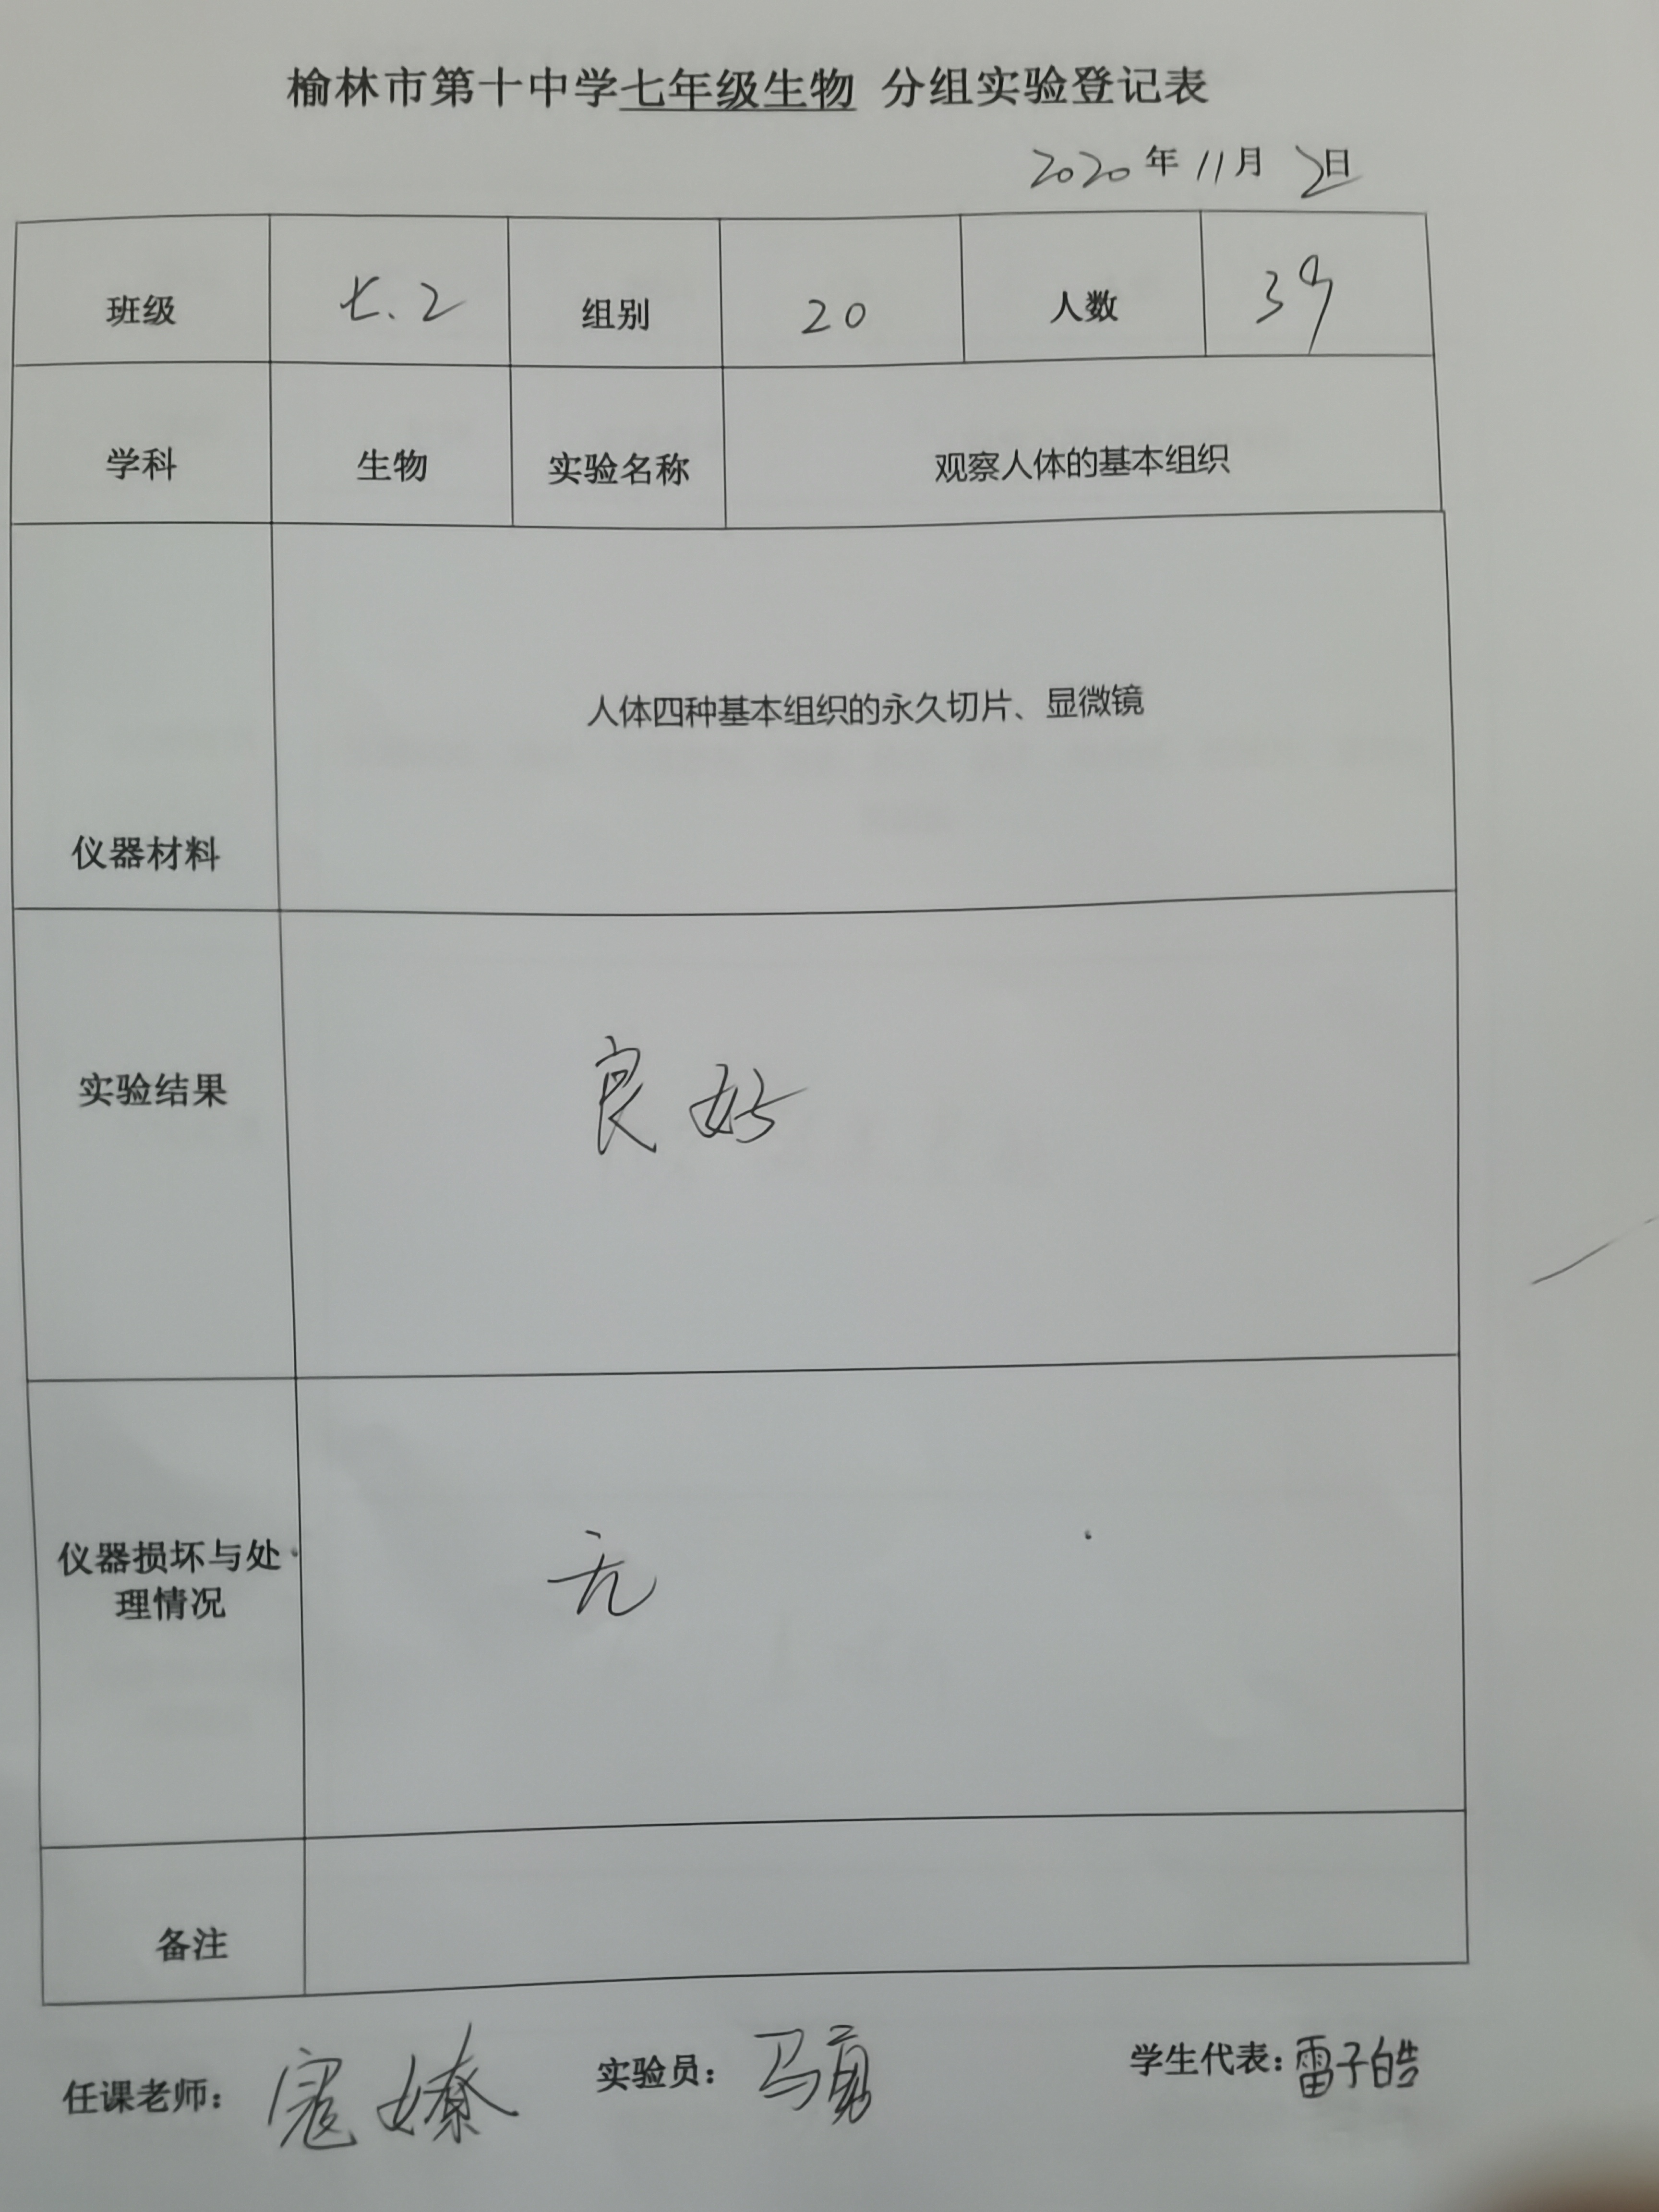 榆林市第十中学七年级生物 分组实验登记表
2020年11月2日
班级 七.2 组别 20 人数 39
学科 生物 实验名称 观察人体的基本组织
人体四种基本组织的永久切片、显微镜
仪器材料
实验结果 良好
仪器损坏与处
理情况
无
备注
任课老师： 寇嫽 实验员： 马勇 学生代表：雷子皓